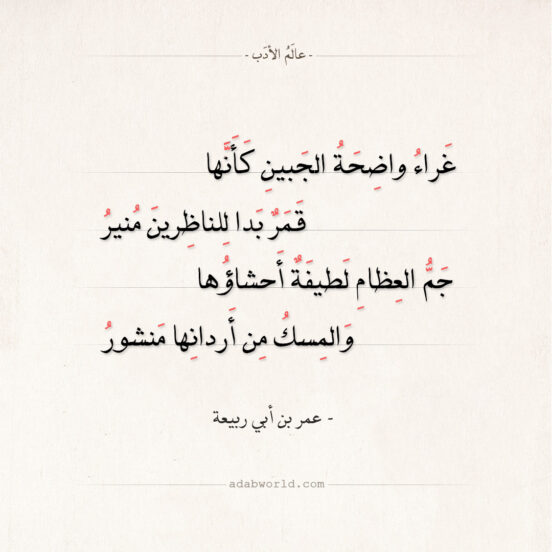 - عالَمُ الأدَب -
غَراءُ واضِحَةُ الجَبينِ كَأَنَّها
قَمَرٌ بَدا لِلناظِرينَ مُنيرُ
جَمُّ العِظامِ لَطيفَةٌ أَحشاؤُها
وَالمِسكُ مِن أَردانِها مَنشورُ
- عمر بن أبي ربيعة
adabworld.com